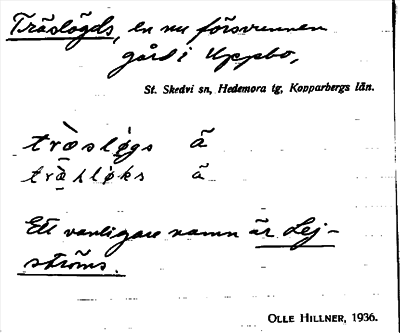 Träslögds, en nu försvunnen
gård i Uppbo,
St. Skedvi sn, Hedemora tg, Kopparbergs län.
träslǫgs ã
ã
Ett vanligare namn är Lej-
ströms.
OLLE HILLNER, 1936.